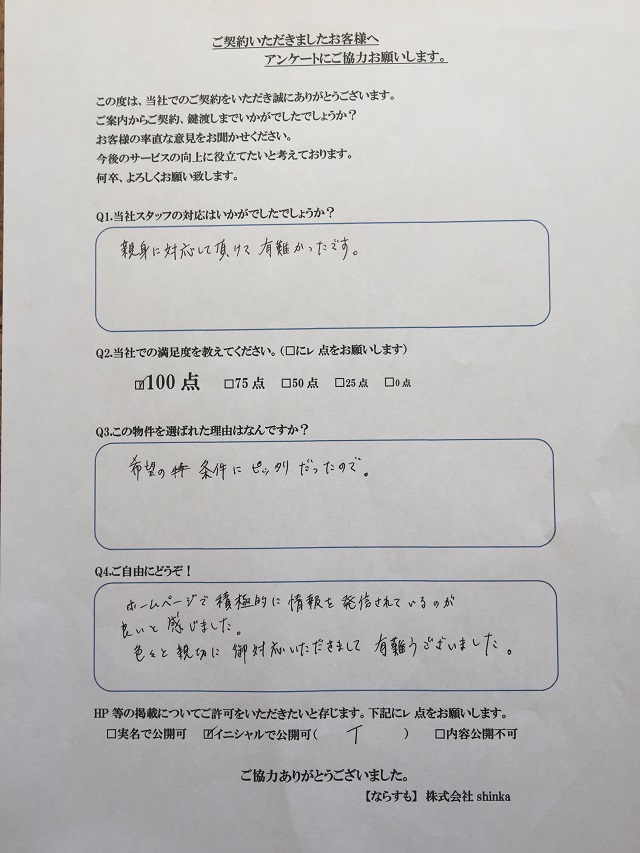 ご契約いただきましたお客様へ
アンケートにご協力お願いします。
この度は、当社でのご契約をいただき誠にありがとうございます。
ご案内からご契約、鍵渡しまでいかがでしたでしょうか？
お客様の率直な意見をお聞かせください。
今後のサービスの向上に役立てたいと考えております。
何卒、よろしくお願い致します。
Q1.当社スタッフの対応はいかがでしたでしょうか？
親身に対応して頂けて有難かったです。
Q2.当社での満足度を教えてください。（□にレ点をお願いします）
☑100点 □75点 □50点 □25点 □0点
Q3.この物件を選ばれた理由はなんですか？
希望の条件にピッタリだったので。
Q4.ご自由にどうぞ！
ホームページで積極的に情報を発信されているのが
良いと感じました。
色々と親切に御対応いただきまして有難うございました。
HP等の掲載についてご許可をいただきたいと存じます。下記にレ点をお願いします。
□実名で公開可 ☑イニシャルで公開可（ T ） □内容公開不可
ご協力ありがとうございました。
【ならすも】株式会社shinka